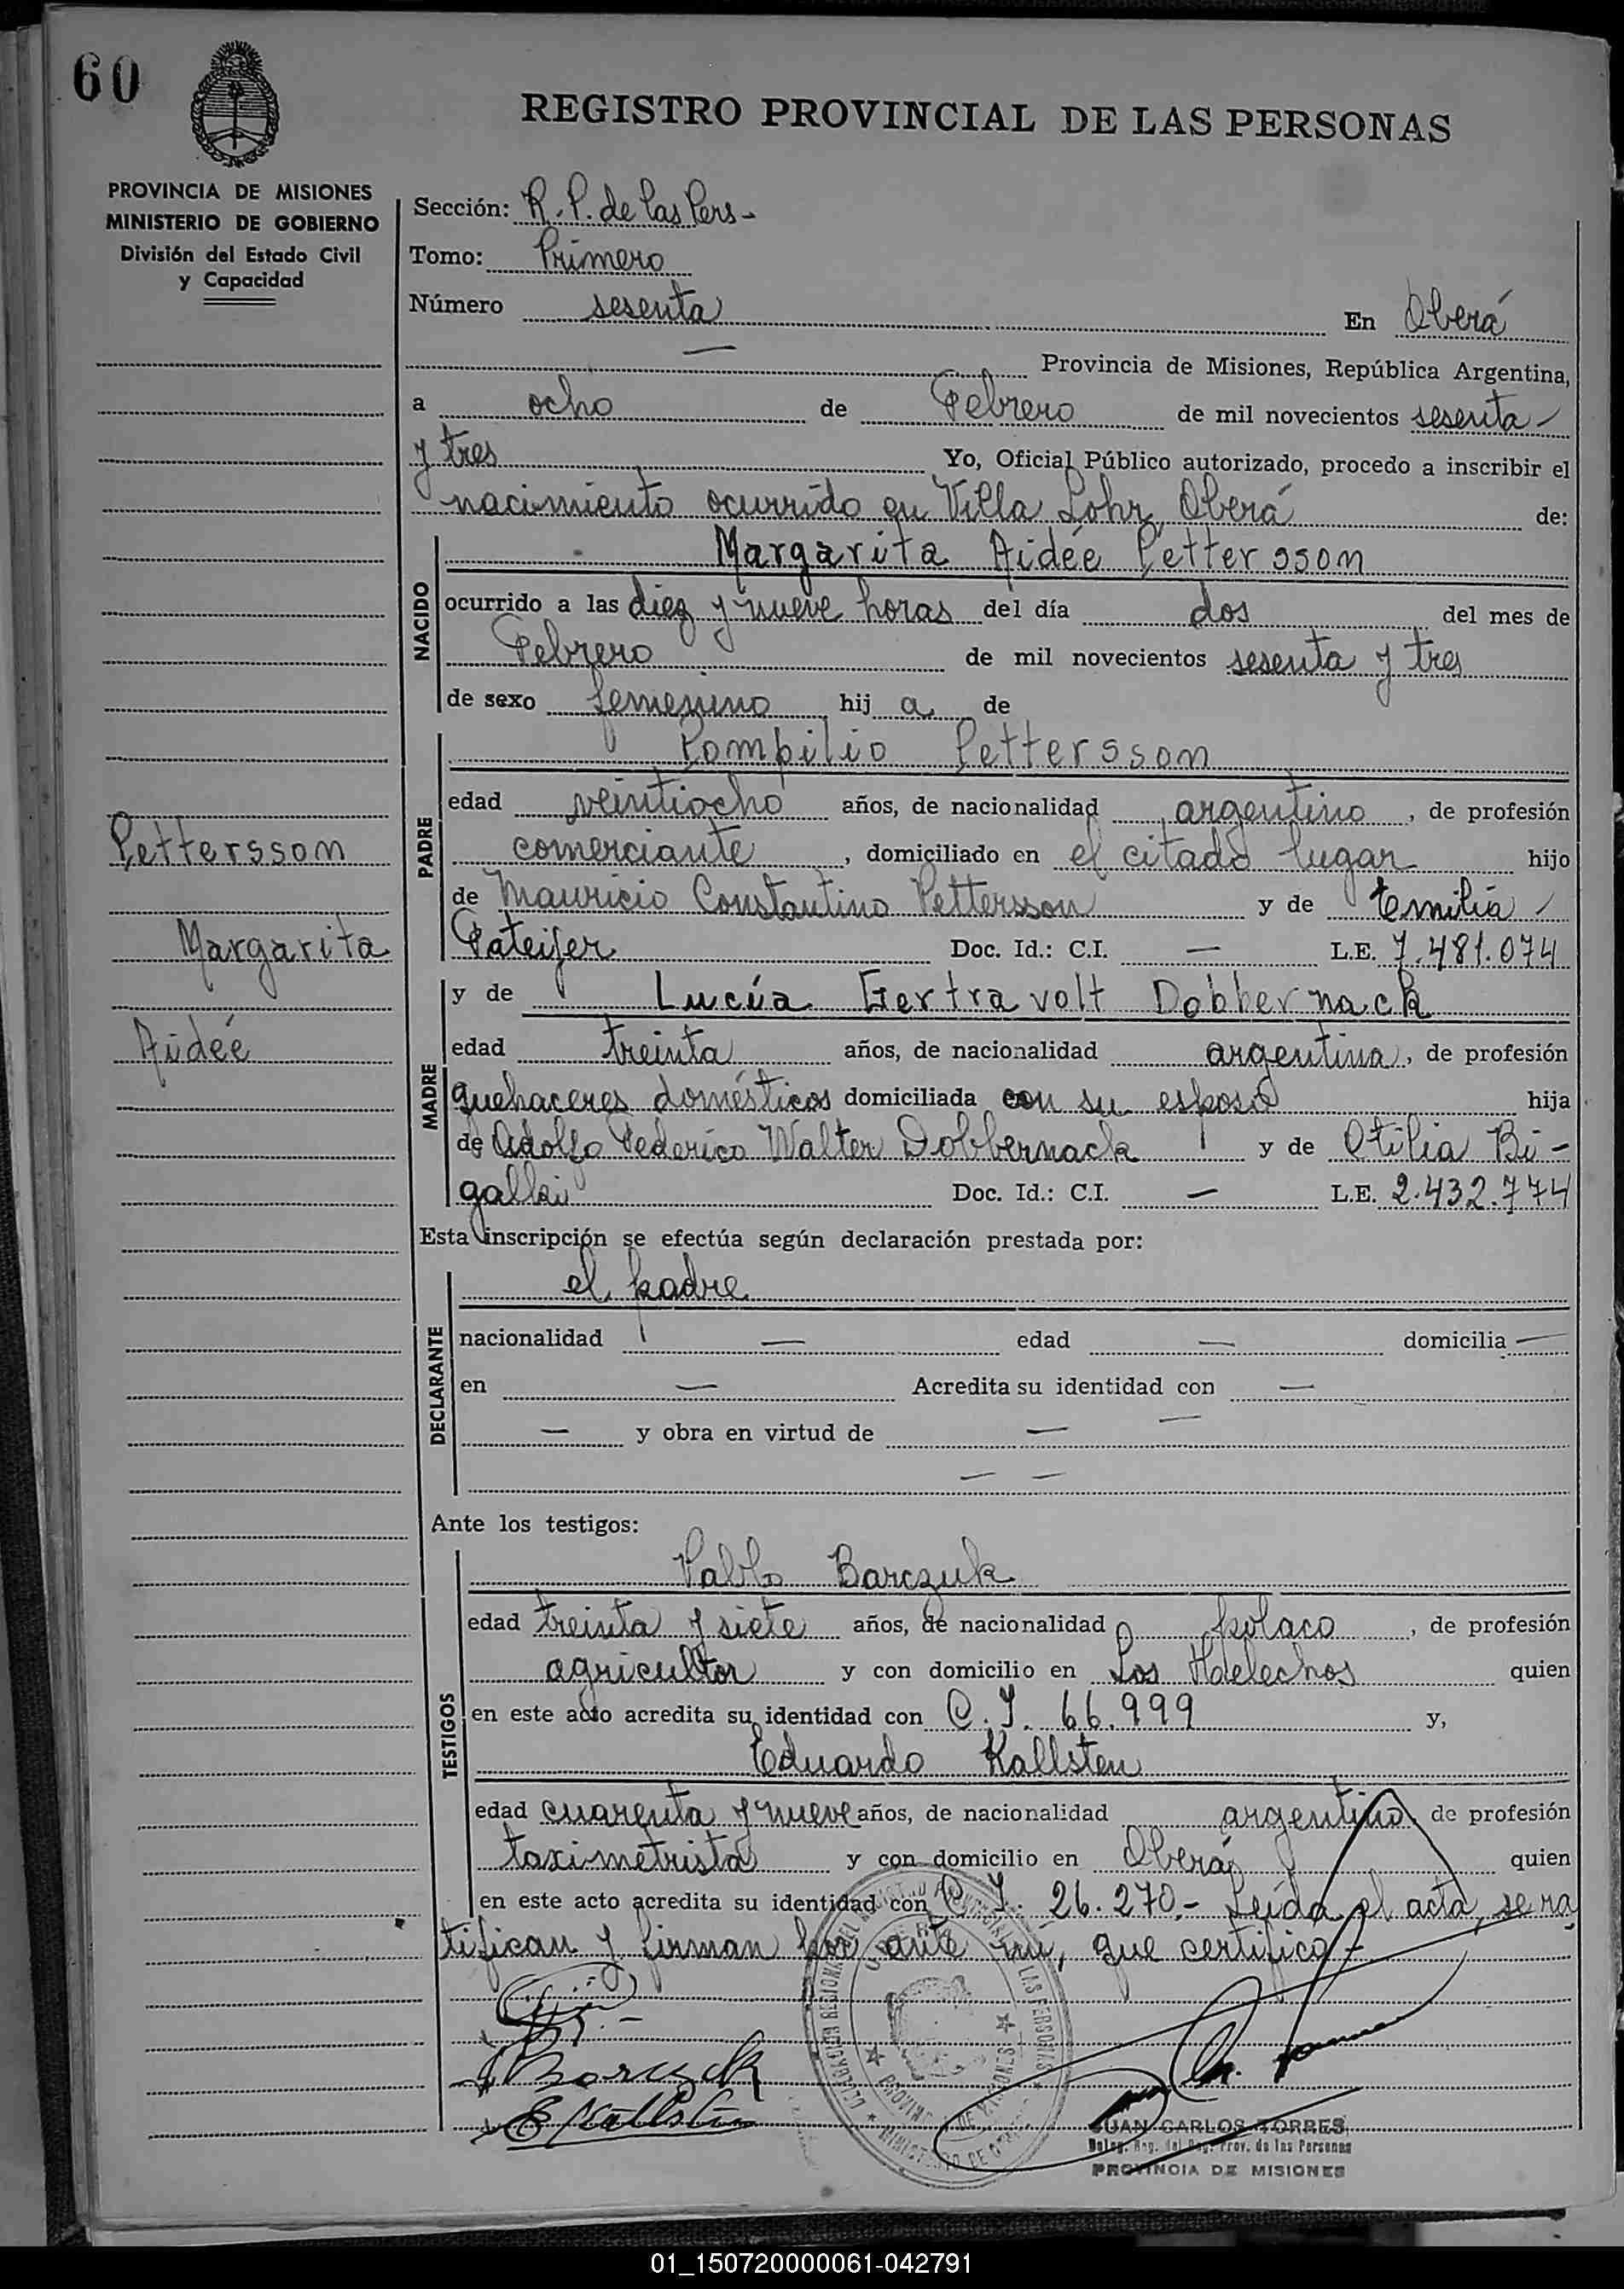 60
REGISTRO PROVINCIAL DE LAS PERSONAS
PROVINCIA DE MISIONES
MINISTERIO DE GOBIERNO
División del Estado Civil
y Capacidad
Sección: R. P. de las Pers-
Tomo: Primero
Número sesenta En Oberá
— Provincia de Misiones, República Argentina,
a ocho de Febrero de mil novecientos sesenta
y tres Yo, Oficial Público autorizado, procedo a inscribir el
nacimiento ocurrido en Villa Lohr, Oberá de:
NACIDO
Margarita Aidée Pettersson
ocurrido a las diez y nueve horas del día dos del mes de
Febrero de mil novecientos sesenta y tres
de sexo femenino hij a de
PADRE
Pompilio Pettersson
edad veintiocho años, de nacionalidad argentino, de profesión
comerciante, domiciliado en el citado lugar hijo
de Mauricio Constantino Pettersson y de Emilia
L.E. 7.481.074
Doc. Id.: C.I. —
Pettersson
Margarita
Aideé
MADRE
y de Lucía Gertravolt Dobbernack
edad treinta años, de nacionalidad argentina, de profesión
quehaceres domésticos domiciliada con su esposo hija
de Adolfo Federico Walter Dobbernack y de Otilia Bi-
galki Doc. Id.: C.I. — L.E. 2.432.774
Esta inscripción se efectúa según declaración prestada por:
DECLARANTE
el padre
nacionalidad — edad — domicilia —
en — Acredita su identidad con —
— y obra en virtud de —
— —
Ante los testigos:
TESTIGOS
Pablo Barczuk
edad treinta y siete años, de nacionalidad polaco, de profesión
agricultor y con domicilio en Los Helechos quien
en este acto acredita su identidad con C. I. 66.999 y,
Eduardo Kallsten
edad cuarenta y nueve años, de nacionalidad argentino de profesión
taximetrista y con domicilio en Oberá, quien
en este acto acredita su identidad con C. I. 26.270.- Leída el acta, se ra
tifican y firman por ante mi, que certifico.-
E Kallsten
JUAN CARLOS TORRES
Deleg. Reg. del Reg. Prov. de las Personas
PROVINCIA DE MISIONES
01_150720000061-042791